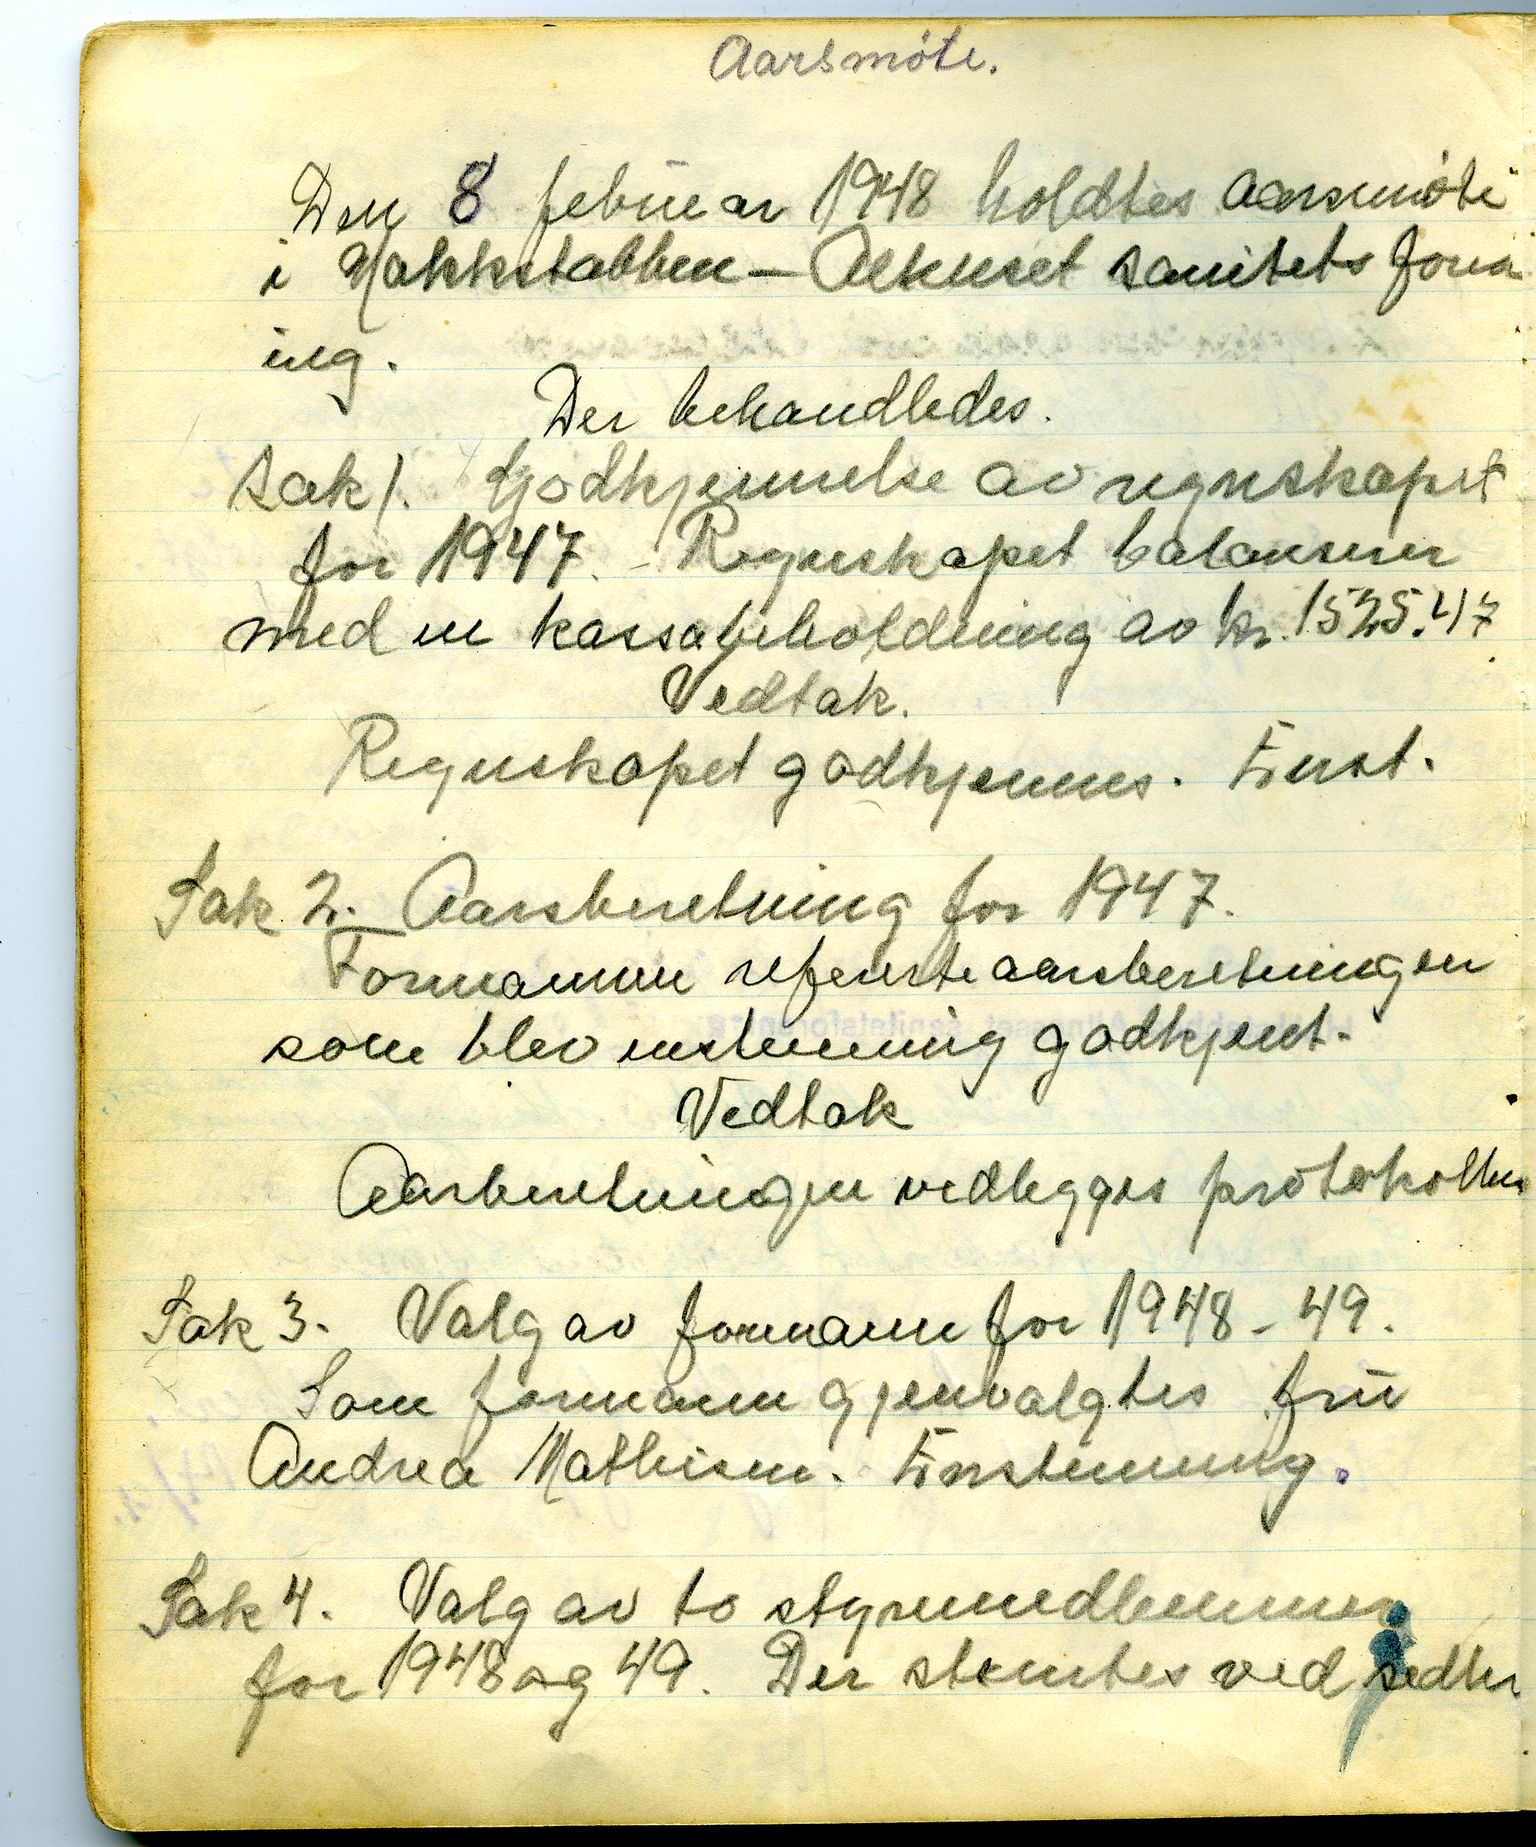 Aarsmöte.
Den 8 februar 1948 holdtes aarsmöte
i Nakkstabben - Alknset sanitets foren
ing.
Der behandledes.
Sak 1. Godkjennelse av regnskapet
for 1947. - Regnskapet balanserer
med en kassabeholdning av kr. 1525.47
Vedtak.
Regnskapet godkjennes. Enst.
Sak 2. Aarsberetning for 1947.
Formannen refererte aarsberetningen
som blev enstemmig godkjent.
Vedtak
Aarsberetningen vedlegges protokollen
Sak 3. Valg av formann for 1948 - 49.
Som formann gjenvalgtes fru
Andrea Mathisen. Enstemmig.
Sak 4. Valg av to styremedlemmer
for 1948 og 49. Der stemtes ved sedler